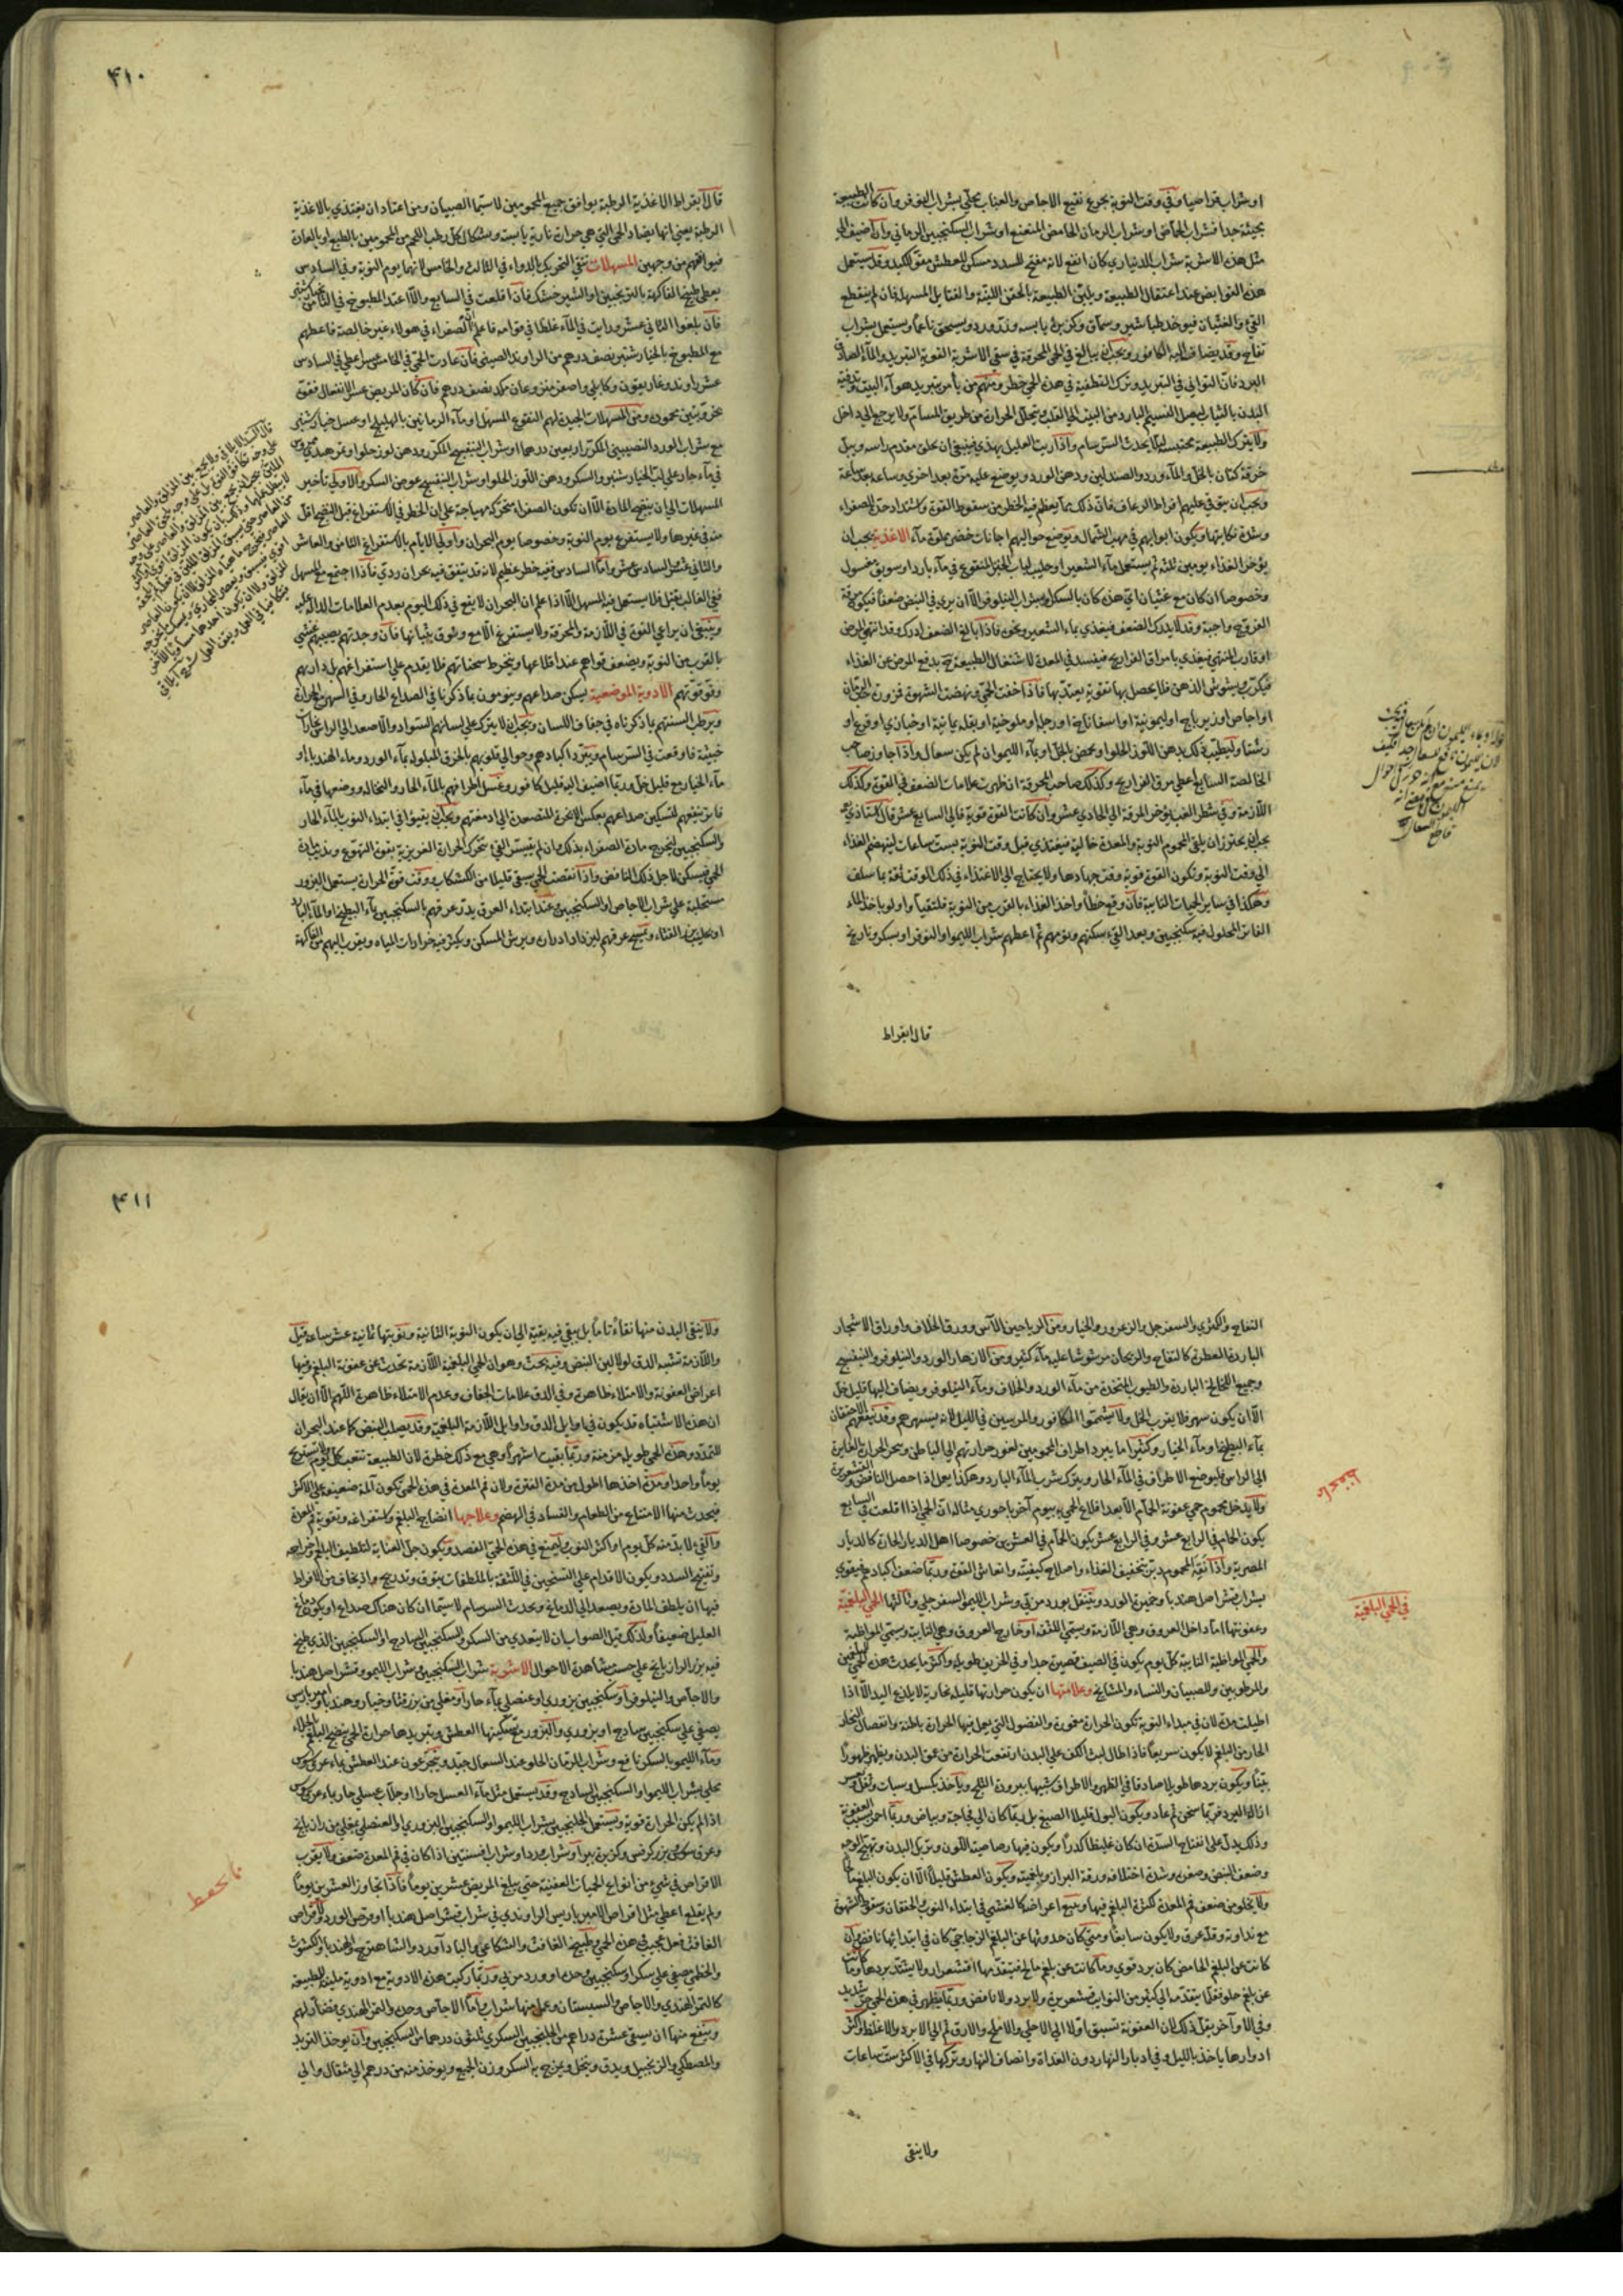 او شراب قراصيا وفي وقت النوبة يجرع نقيع الاجاص والعناب محلّي بشراب النيلوفر وان كانت الطبيعة
مجيبة جدا فشراب الحماض او شراب الرمان الحامض المنعنع او شراب السكنجبين الرماني وان اضيف الى
مثل هذه الاشربة شراب الدينارى كان انفع لانه مفتح للسدد مسكن للعطش مقو للكبد وقد يستعمل
هذه القوابض عند اعتقال الطبيعة ويلين الطبيعة بالحقن اللينة والفتايل المسهلة فان لم ينقطع
القيء والغثيان فيوخذ طباشير وسماق وكزبرة يابسة وزر ورد ويسحق ناعما ويستعمل بشراب
تفاح وقد يضاف اليه الكافور ويجب ان يبالغ في الحمى المحرقة في سقي الاشربة القوية التبريد والماء الصادق
البرد فان التواني في التبريد وترك التطفية في هذه الحمى خطر ومنهم من يأمر بتبريد هواء البيت وتدفية
البدن بالثياب ليصل النسيم البارد من البيت الى القلب ويتحلل الحرارة من طريق المسام ولا يرجع الى داخل
ولا يترك الطبيعة محتبسة لئلا يحدث السرسام واذا رايت العليل يهذي فينبغي ان يحلق مقدم راسه ويبل
خرقة كتان بالخل والماء ورد والصندلين ودهن الورد ويوضع عليه مرة بعد اخرى وساعة بعد ساعة
ويجب ان يتوقى عليهم افراط الرعاف فان ذلك مما يعظم فيه الخطر من سقوط القوة واشتداد حدة الصفراء
وشدة نكايتها ويكون ابوابهم في مهب الشمال ويوضع حواليهم اجانات خضر مملوة ماء الاغذية يجب ان
يؤخر الغذاء يومين ثلثة ثم يستعمل ماء الشعير او حليب لباب الخبز المنقوع في ماء بارد او سويق مغسول
وخصوصا ان كان مع غثيان اي هذه كان بالسكر او بشراب النيلوفر الا ان يرى في النبض ضعفا فيكون مرقة
الفروج واجبة وقد لا يدرك الضعف فيغذي بماء الشعير ونحوه فاذا بالغ الضعف ادرك وقد انتهى المرض
او قارب المنتهى فيغذى بامراق الفراريج فيفسد في المعدة لاشتغال الطبيعة ح بدفع المرض عن الغذاء
فيكرب ويشوش الذهن فلا يحصل بها تقوية يعتد بها فاذا خفت الحمى ونهضت الشهوة فزورة
او اجاص او زيرباج او ليمونية او اسفاناخ او رجلة او ملوخية او بقلة يمانية او خبازى او قرع او
رشتا وليطيب ذلك بدهن اللوز الحلو او يحمض بالخل او بماء الليموان لم يكن سعال واذا جاوز صاحب
الخالصة السابع اعطى مرق الفراريج وكذلك صاحب المحرقة ان ظهرت علامات الضعف في القوة وكذلك
اللازمة وفي شطر الغب يؤخر المرقة الى الحادى عشر وان كانت القوة قوية فالى السابع عشر قال استاذي
يجب ان يحترز ان يلقى المحموم النوبة والمعدة خالية فيغتذي قبل وقت النوبة بست ساعات لينهضم الغذاء
الى وقت النوبة وتكون القوة قوية وقت جهادها ولا يحتاج الى الاغتذاء في ذلك الوقت ثقة بما سلف
وهكذا في ساير الحميات النايبة فان وقع خطأ واخذ الغذاء بالقرب من النوبة فليتقيأ ولو باخذ الماء
الفاتر المحلول فيه سكنجبين وبعد القيء سكنهم ونومهم ثم اعطهم شراب الليموا والنوفر او سكر ونارنج
قال ابقراط
٤١٠
قال ابقراط الاغذية الرطبة يوافق جميع المحمومين لا سيما الصبيان ومن اعتاد ان يغتذي بالاغذية
الرطبة يعني انها يضاد الحمى التي هي حرارة نارية يابسة ويشكل كل رطب المزاج من المحمومين بالطبع او بالعادة
فيوافقهم من وجهين المسهلات ننقى التحريك بالدواء في الثالث والخامس لانهما يوم النوبة وفي السادس
يعطى طبيخ الفاكهة بالترنجبين او الشير خشك فان اقلعت في السابع والا اعتد المطبوخ في الثامن بخيار شنبر
فان بلغوا الثاني عشر ورايت في الماء غلظا في قوامه فاعلم ان الصفراء في هولاء غير خالصة فاعطهم
مع المطبوخ بالخيار شنبر نصف درهم من الراوند الصيني فان عادت الحمى في الخامس عشر اعطي في السادس
عشر راوند وغاريقون وكابلي واصفر منزوعان مكد نصف درهم فان كان المريض عسر الانفعال فقوة
بخروبتين محمودة ومن المسهلات الجيدة لهم النقوع المسهل او ماء الرمانين بالهليلج او عسل خيار شنبر
مع شراب الورد النصيبيني المكرر اربعين درهما او شراب البنفسج المكرر ودهن لوز حلو او تمر هندي ممروس
في ماء حار على لب الخيار شنبر والسكر ودهن اللوز الحلو او شراب البنفسج عوض السكر والاولى تأخير
المسهلات الى ان ينضج المادة الا ان تكون الصفراء متحركة مهياجة على ان الخطر في الاستفراغ قبل النضج اقل
منه في غيرها ولا يستفرغ يوم النوبة وخصوصا يوم البحران واولى الايام بالاستفراغ الثامن والعاشر
والثاني عشر والسادس عشر واما السادس ففيه خطر عظيم لانه قد يتفق فيه بحران ردي فاذا اجتمع مع المسهل
ففي الغالب يقتل فلا يستعمل فيه المسهل الا اذا علم ان البحران لا يقع في ذلك اليوم بعدم العلامات الدالة عليه
وينبغي ان يراعي القوة في اللازمة والمحرقة ولا يستفرغ الا مع وثوق بثباتها فان وجدتهم يصيبهم غشي
بالقرب من النوبة ويضعف قواهم عند اقلاعها وينخرط سحناتهم فلا يقدم على استفراغهم بل دارهم
وقو قوتهم الادوية الموضعية يسكن صداعهم وينومون بما ذكرنا في الصداع الحار وفي السهر مع الحرارة
ويرطب السنتهم بما ذكرناه في جفاف اللسان ويجب ان لا يترك على لسانهم السواد والا صعد الى الراس بخارات
خبيثة فاوقعت في السرسام ويبرد اكبادهم وحوالى قلوبهم بالخرق المبلولة بماء الورد وماء الهندباء او
ماء الخيار مع قليل خل وربما اضيف اليه قليل كافور وغسل اطرافهم بالماء الحار والنخالة ووضعها في ماء
فاتر ينفعهم لتسكين صداعهم بعكس الابخرة المتصعدة الى ادمغتهم ويجب ان يقيئوا في ابتداء النوب بالماء الحار
والسكنجبين ليخرج مادة الصفراء بذلك وان لم يتيسر القيء تتحرك الحرارة الغريزية بقوة التهوع ويذيب مادة
الحمى فيسكن لاجل ذلك النافض واذا نقصت الحمى سقي قليلا من الكشكاب ووقت قوة الحرارة يستعمل البزور
مستحلبة على شراب الاجاص او السكنجبين وعند ابتداء العرق يدر عرقهم بالسكنجبين بماء البطيخ او الماء البارد
او بحليب بزر القثاء ويمسح عرقهم ليزداد ادراره ويرش المسكن ويكثر فيه خرارات المياه ويقرب اليهم من الفاكهة
التفاح والكمثرى والسفرجل والزعرور والخيار ومن الرياحين الآس وورق الخلاف واوراق الاشجار
الباردة العطرة كالتفاح والريحان مرشوشا عليه ماء كثير ومن الازهار الورد والنيلوفر والبنفسج
وجميع اللخالخ الباردة والطيوب المتخذة من ماء الورد والخلاف وماء النيلوفر ويضاف اليها قليل خل
الا ان يكون سهر فلا يقرب الخل ولا يشتموا الكافور والمرسين في الليل لانه يسهرهم وقد ينفعهم الاحتقان
بماء البطيخ او ماء الخيار وكثيرا ما يبرد اطراف المحمومين لغور حرارتهم الى الباطن وبخر الحرارة الغايرة
الى الراس فليوضع الاطراف في الماء الحار ويترك شرب الماء البارد وهكذا يعمل اذا حصل النافض والقشعريرة
ولا يدخل محموم حمى عفونة الحمام الا بعد اقلاع الحمى بيوم آخر باحورى مثاله ان الحمى اذا اقلعت في السابع
يكون الحمام في الرابع عشر وفي الرابع عشر يكون الحمام في العشرين خصوصا اهل الديار الحارة كالديار
المصرية واذا نقه المحموم دبر بتخفيف الغذاء واصلاح كيفيته وانعاش القوة وربما ضعف اكبادهم فيقوى
بشراب قشر اصل هندبا وخميرة الورد ويتنقل بورد مربى وشراب الليمو السفرجلي وثالثها الحمى البلغمية
وعفونتها اما داخل العروق وهي اللازمة ويسمى اللثقة او خارج العروق وهي النايبة ويسمى المواظبة
والحمى المواظبة النايبة كل يوم يكون في الصيف قصيرة جدا وفي الخريف طويلة واكثر ما يحدث هذه الحمى للبلغميين
والمرطوبين والصبيان والنساء والمشايخ وعلامتها ان يكون حرارتها قليلة بخارية لا يلذع اليد الا اذا
اطيلت مدة لان في مبداء النوبة تكون الحرارة مغمورة والفضول التي يعمل فيها الحرارة باطنة وانفصال البخار
الحار من البلغم لا يكون سريعا فاذا طال لبث الكف على البدن ارتفعت الحرارة من عمق البدن ويظهر ظهورا
بينا ويكون بردها طويلا صادقا في الظهر والاطراف شبيها ببرودة الثلج ويأخذ بكسل وسبات وثقل وعسر
ازالة البرد فربما سخن ثم عاد ويكون البول قليل الصبغ بل ربما كان الى فجاجة وبياض وربما احمر بسبب العفونة
وذلك يدل على انفتاح السدة ان كان غليظا كدرا ويكون فيها رصاصية اللون وتربل البدن وتهيج الوجه
وضعف النبض وصغره وشدة اختلافه ورقة البراز وبلغميته ويكون العطش قليلا الا ان يكون البلغم مالحا
ولا يخلو من ضعف فم المعدة لكثرة البلغم فيها ويتبع اعراضه كالغشي في ابتداء النوب والخفقان وسقوط الشهوة
مع نداوة وقلة عرق ولا يكون سابغا ومتى كان حدوثها عن البلغم الزجاجي كان في ابتدائها نافض وان
كانت عن البلغم الحامض كان برد قوى وما كانت عن بلغم مالح فيتقدمها اقشعرار ولا يشتد بردها وما كانت
عن بلغم حلو فقلما يتقدمه الى كثير من النوايب قشعريرة ولا برد ولا نافض وربما يظهر في هذه الحمى حر شديد
وفي الاواخر يقل ذلك لان العفونة تسبق اولا الى الاحلى والاملح والارق ثم الى الابرد والاغلظ واكثر
ادوارها ياخذ بالليل وفي ادبار النهار دون الغداة وانصاف النهار وتركها في الاكثر ست ساعات
في الحمى البلغمية
ولا ينقى
٤١١
ولا ينقى البدن منها نقاءً تاماً بل يبقى فيه بقية الى ان يكون النوبة الثانية ونوبتها ثمانية عشر ساعة قيل
واللازمة تشبه الدق لولا لين النبض وفيه بحث وهو ان الحمى البلغمية اللازمة تحدث عن عفونة البلغم وفيها
اعراض العفونة والامتلاء ظاهرة وفي الدق علامات الجفاف وعدم الامتلاء ظاهرة اللهم الا ان يقال
ان هذا الاشتباه قد يكون في اوايل الدق واوايل اللازمة البلغمية وقد يصلب النبض كما عند البحران
للتمدد وهذه الحمى طويلة مزمنة وربما بقيت اشهرا وهي مع ذلك خطرة لان الطبيعة تتعب كل يوم ولا تستريح
يوما واحدا ومدة اخذها اطول من مدة الفترة ولان فم المعدة في هذه الحمى تكون آلمة ضعيفة على الاكثر
فيحدث منها الامتناع من الطعام والفساد في الهضم وعلاجها انضاج البلغم واستفراغه وتقوية فم المعدة
والقيء لا بد منه كل يوم او اكثر النوب ويمنع في هذه الحمى الفصد ويكون جل العناية لتلطيف البلغم واخراجه
وتفتيح السدد ويكون الاقدام على التسخين في اللثقة بالملطفات بتوق وتدريج واذ يخاف من الافراط
فيها ان يلطف المادة ويصعد الى الدماغ ويحدث السرسام لا سيما ان كان هناك صداع او يكون دماغ
العليل ضعيفا ولذلك قيل الصواب ان لا يتعدى من السكر والسكنجبين الساذج او السكنجبين الذي طبخ
فيه بزر الرازيانج على حسب مشاهدة الاحوال الاشربة شراب السكنجبين وشراب الليمو وقشر اصل هندبا
والاجاص والنيلوفر او سكنجبين بزورى او عنصلي بماء حار او مغلى من بزر قثا وخيار وهندبا وامير باريس
يصفى على سكنجبين ساذج او بزورى والبزور مع تسكينها العطش وتبريدها حرارة الحمى ينضج البلغم بالجلاء
وماء الليمو بالسكر نافع وشراب الرمان الحلو عند السعال جيد ويتجرعون عند العطش بماء عرق سوس
محلى بشراب الليموا والسكنجبين الساذج وقد يستعمل مثل ماء العسل حارا او جلاب عسلي حار بماء عرق سوس
اذا لم يكن الحرارة قوية ويستعمل الجلنجبين بشراب الليموا والسكنجبين البزورى او العنصلى بمغلى من رازيانج
وعرق سوس وبزر كرفس وكزبرة بير او شراب ورد او شراب افسنتين اذا كان في فم المعدة ضعف ولا يقرب
الاقراص في شيء من انواع الحميات العفنية حتى يبلغ المريض عشرين يوما فاذا تجاوز العشرين يوما
ولم يقلع اعطي مثل اقراص الامير باريس الراوندي في شراب قشر اصل هندبا او قرص الورد واقراص
الغافت فعل عجيب في هذه الحمى وطبيخ الغافت والشكاعى والباد آورد والشاهترج والهندبا والكشوث
والخطمي مصفى على سكر او سكنجبين وحده او ورد مربى وربما ركبت هذه الادوية مع ادوية ملينة للطبيعة
كالتمر الهندي والاجاص والسبستان وعمل منها شراب واما الاجاص وحده والتمر الهندي فضار لهم
وينفع منها ان يسقى عشرة دراهم من الجلنجبين السكري بثلثون درهما من السكنجبين وان يوخذ التربد
والمصطكي والزنجبيل ويدق وينخل ويمزج به السكر وزن الجميع ويوخذ منه من درهم الى مثقال والى